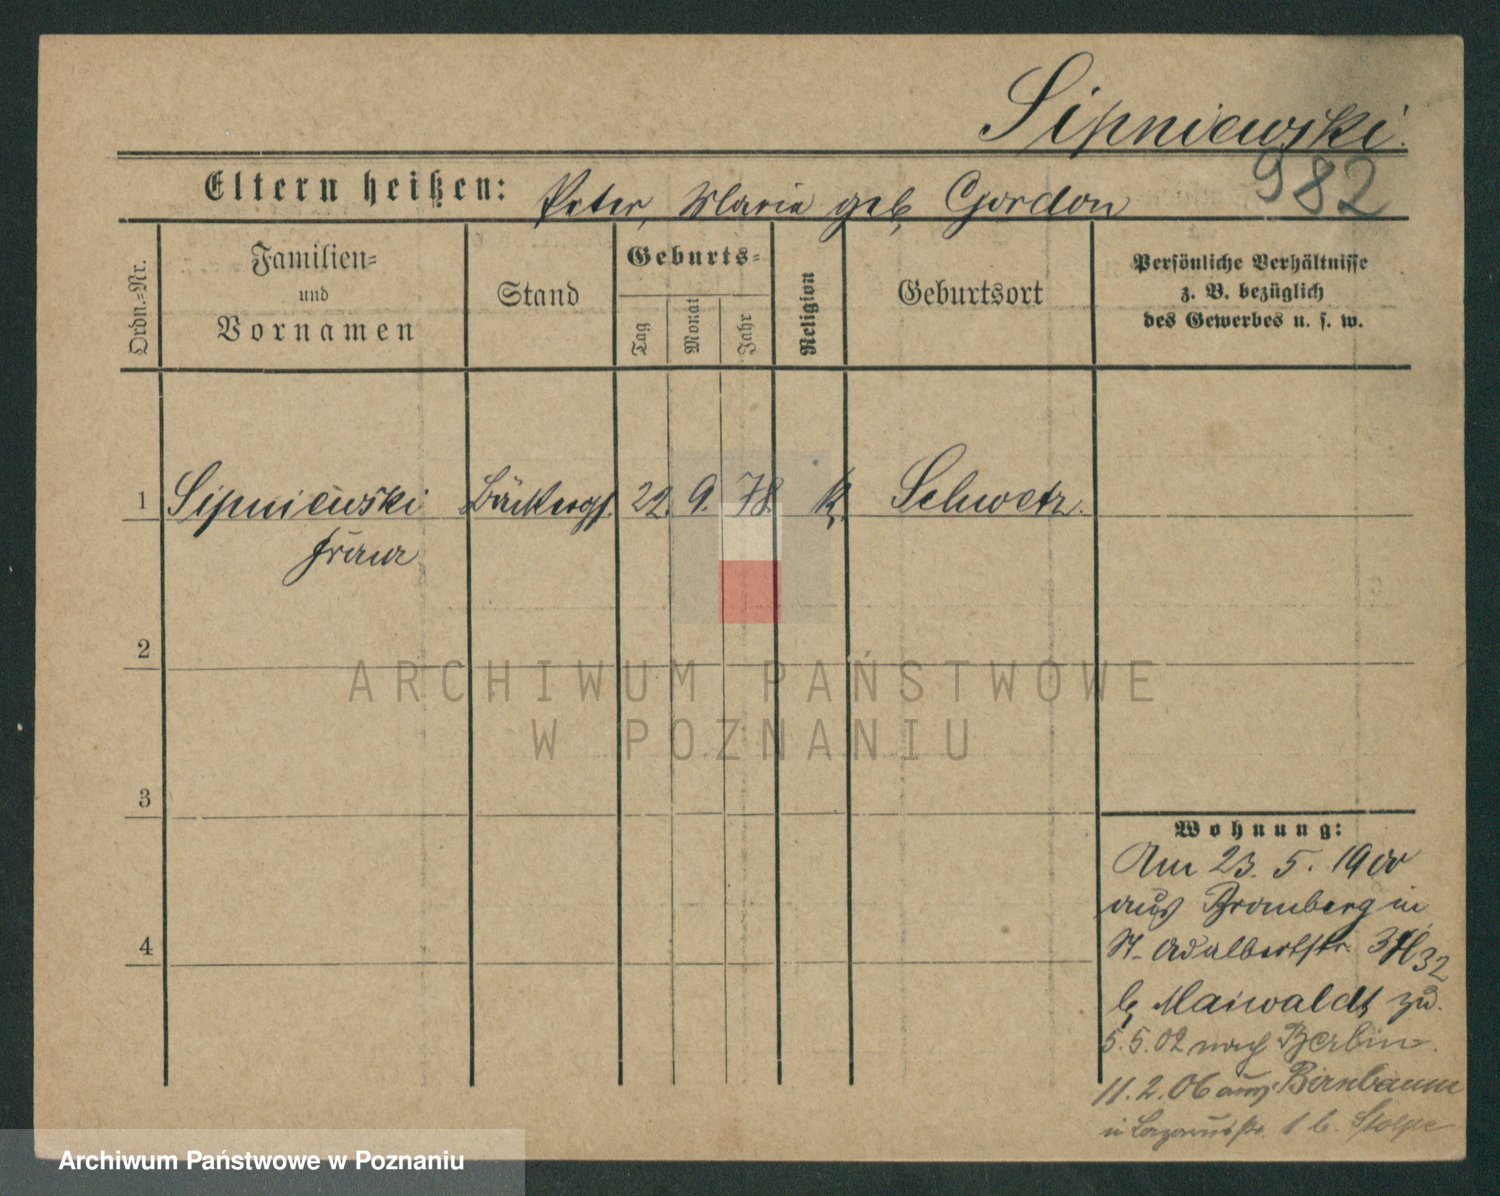 Sipniewski.
982
Eltern heißen: Peter, Maria geb. Gordon
Ordn.=Nr.
Familien=
und
Vornamen
Stand
Geburts=
Tag
Monat
Jahr
Religion
Geburtsort
Persönliche Verhältnisse
z. B. bezüglich
des Gewerbes u. s. w.
1 Sipniewski Bäckergs. 22. 9. 78. k. Schwetz.
Franz
2
3
4
ARCHIWUM PAŃSTWOWE
W POZNANIU
Wohnung:
Am 23. 5. 1900
aus Bromberg in
St. Adalbertstr. 32
b. Maiwaldt zu.
5. 5. 02 nach Berlin.
11. 2. 06 aus Birnbaum
in Lazarusstr. 1 b. Stolpe
Archiwum Państwowe w Poznaniu